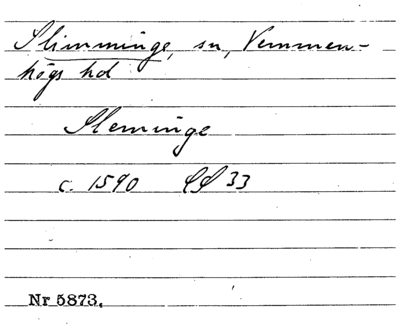 Slimminge, sn, Vemmen-
högs hd
Sleminge
c. 1590 33
Nr 5873.